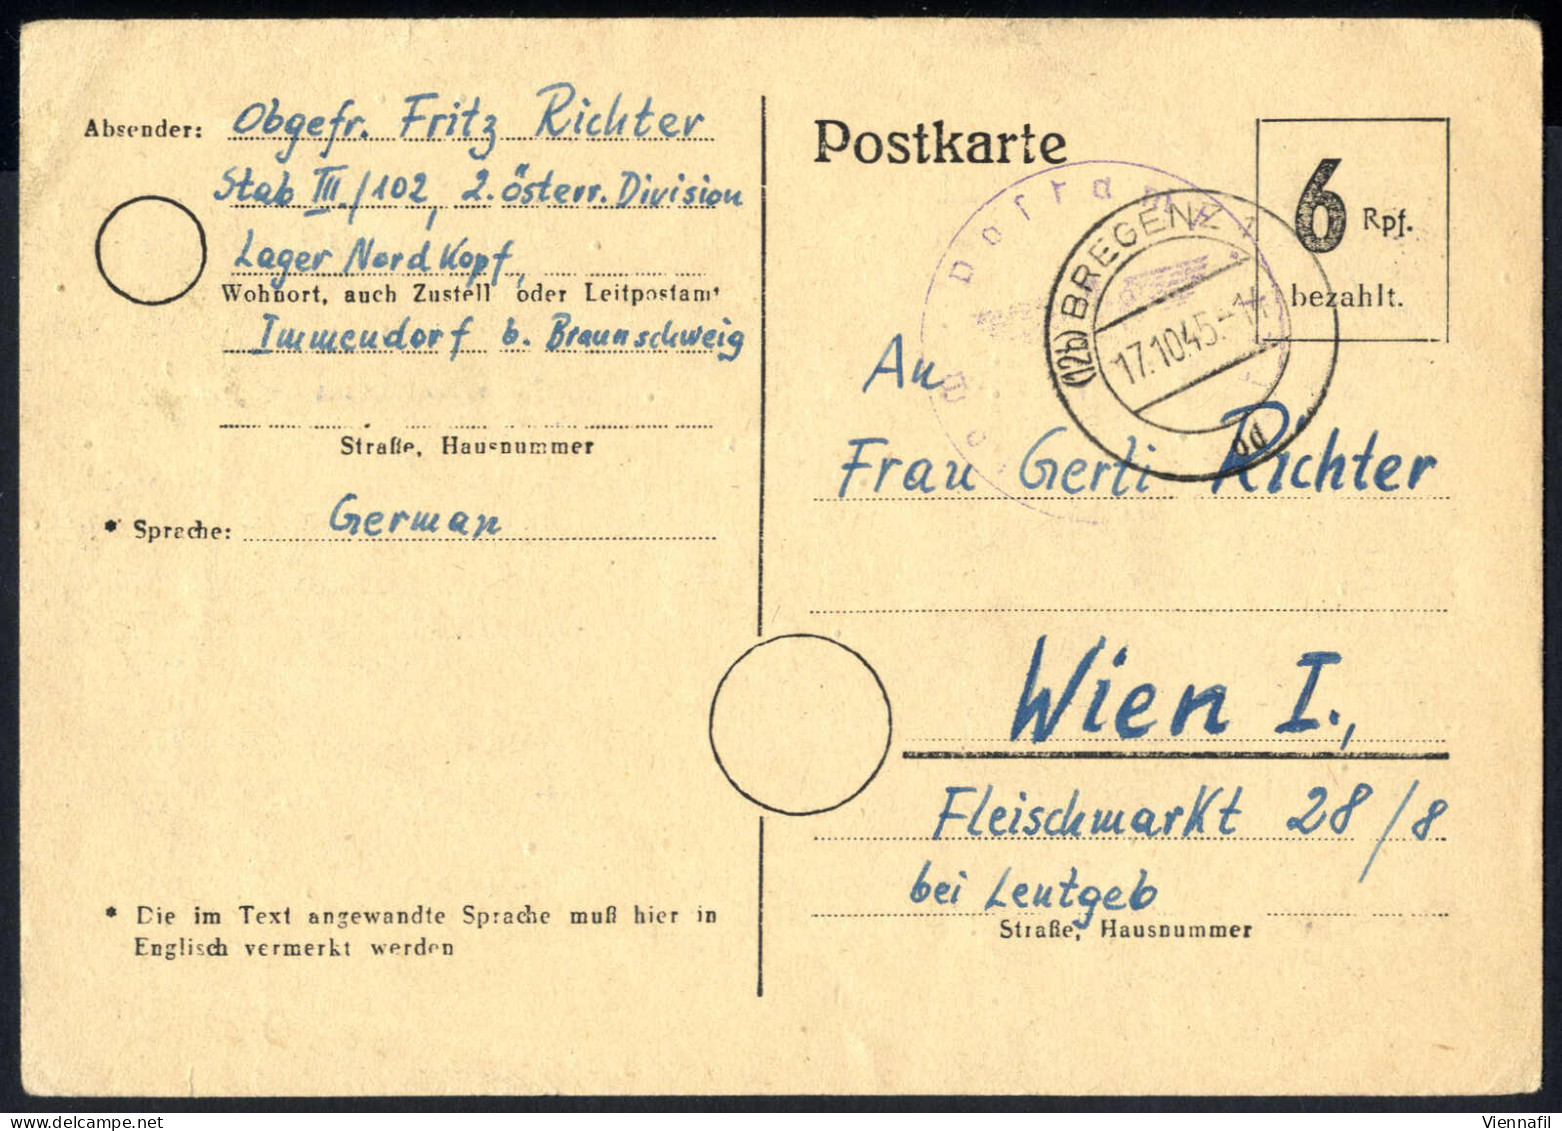 Absender: Obgefr. Fritz Richter
Stab III./102, 2. österr. Division
Lager Nordkopf,
Wohnort, auch Zustell oder Leitpostamt
Immendorf b. Braunschweig
Straße, Hausnummer
* Sprache: German
* Die im Text angewandte Sprache muß hier in
Englisch vermerkt werden
Postkarte
6 Rpf.
bezahlt.
(12b) BREGENZ 1
17.10.45.-11
An
Frau Gerti Richter
Wien I.,
Fleischmarkt 28/8
bei Leutgeb
Straße, Hausnummer
Viennafil